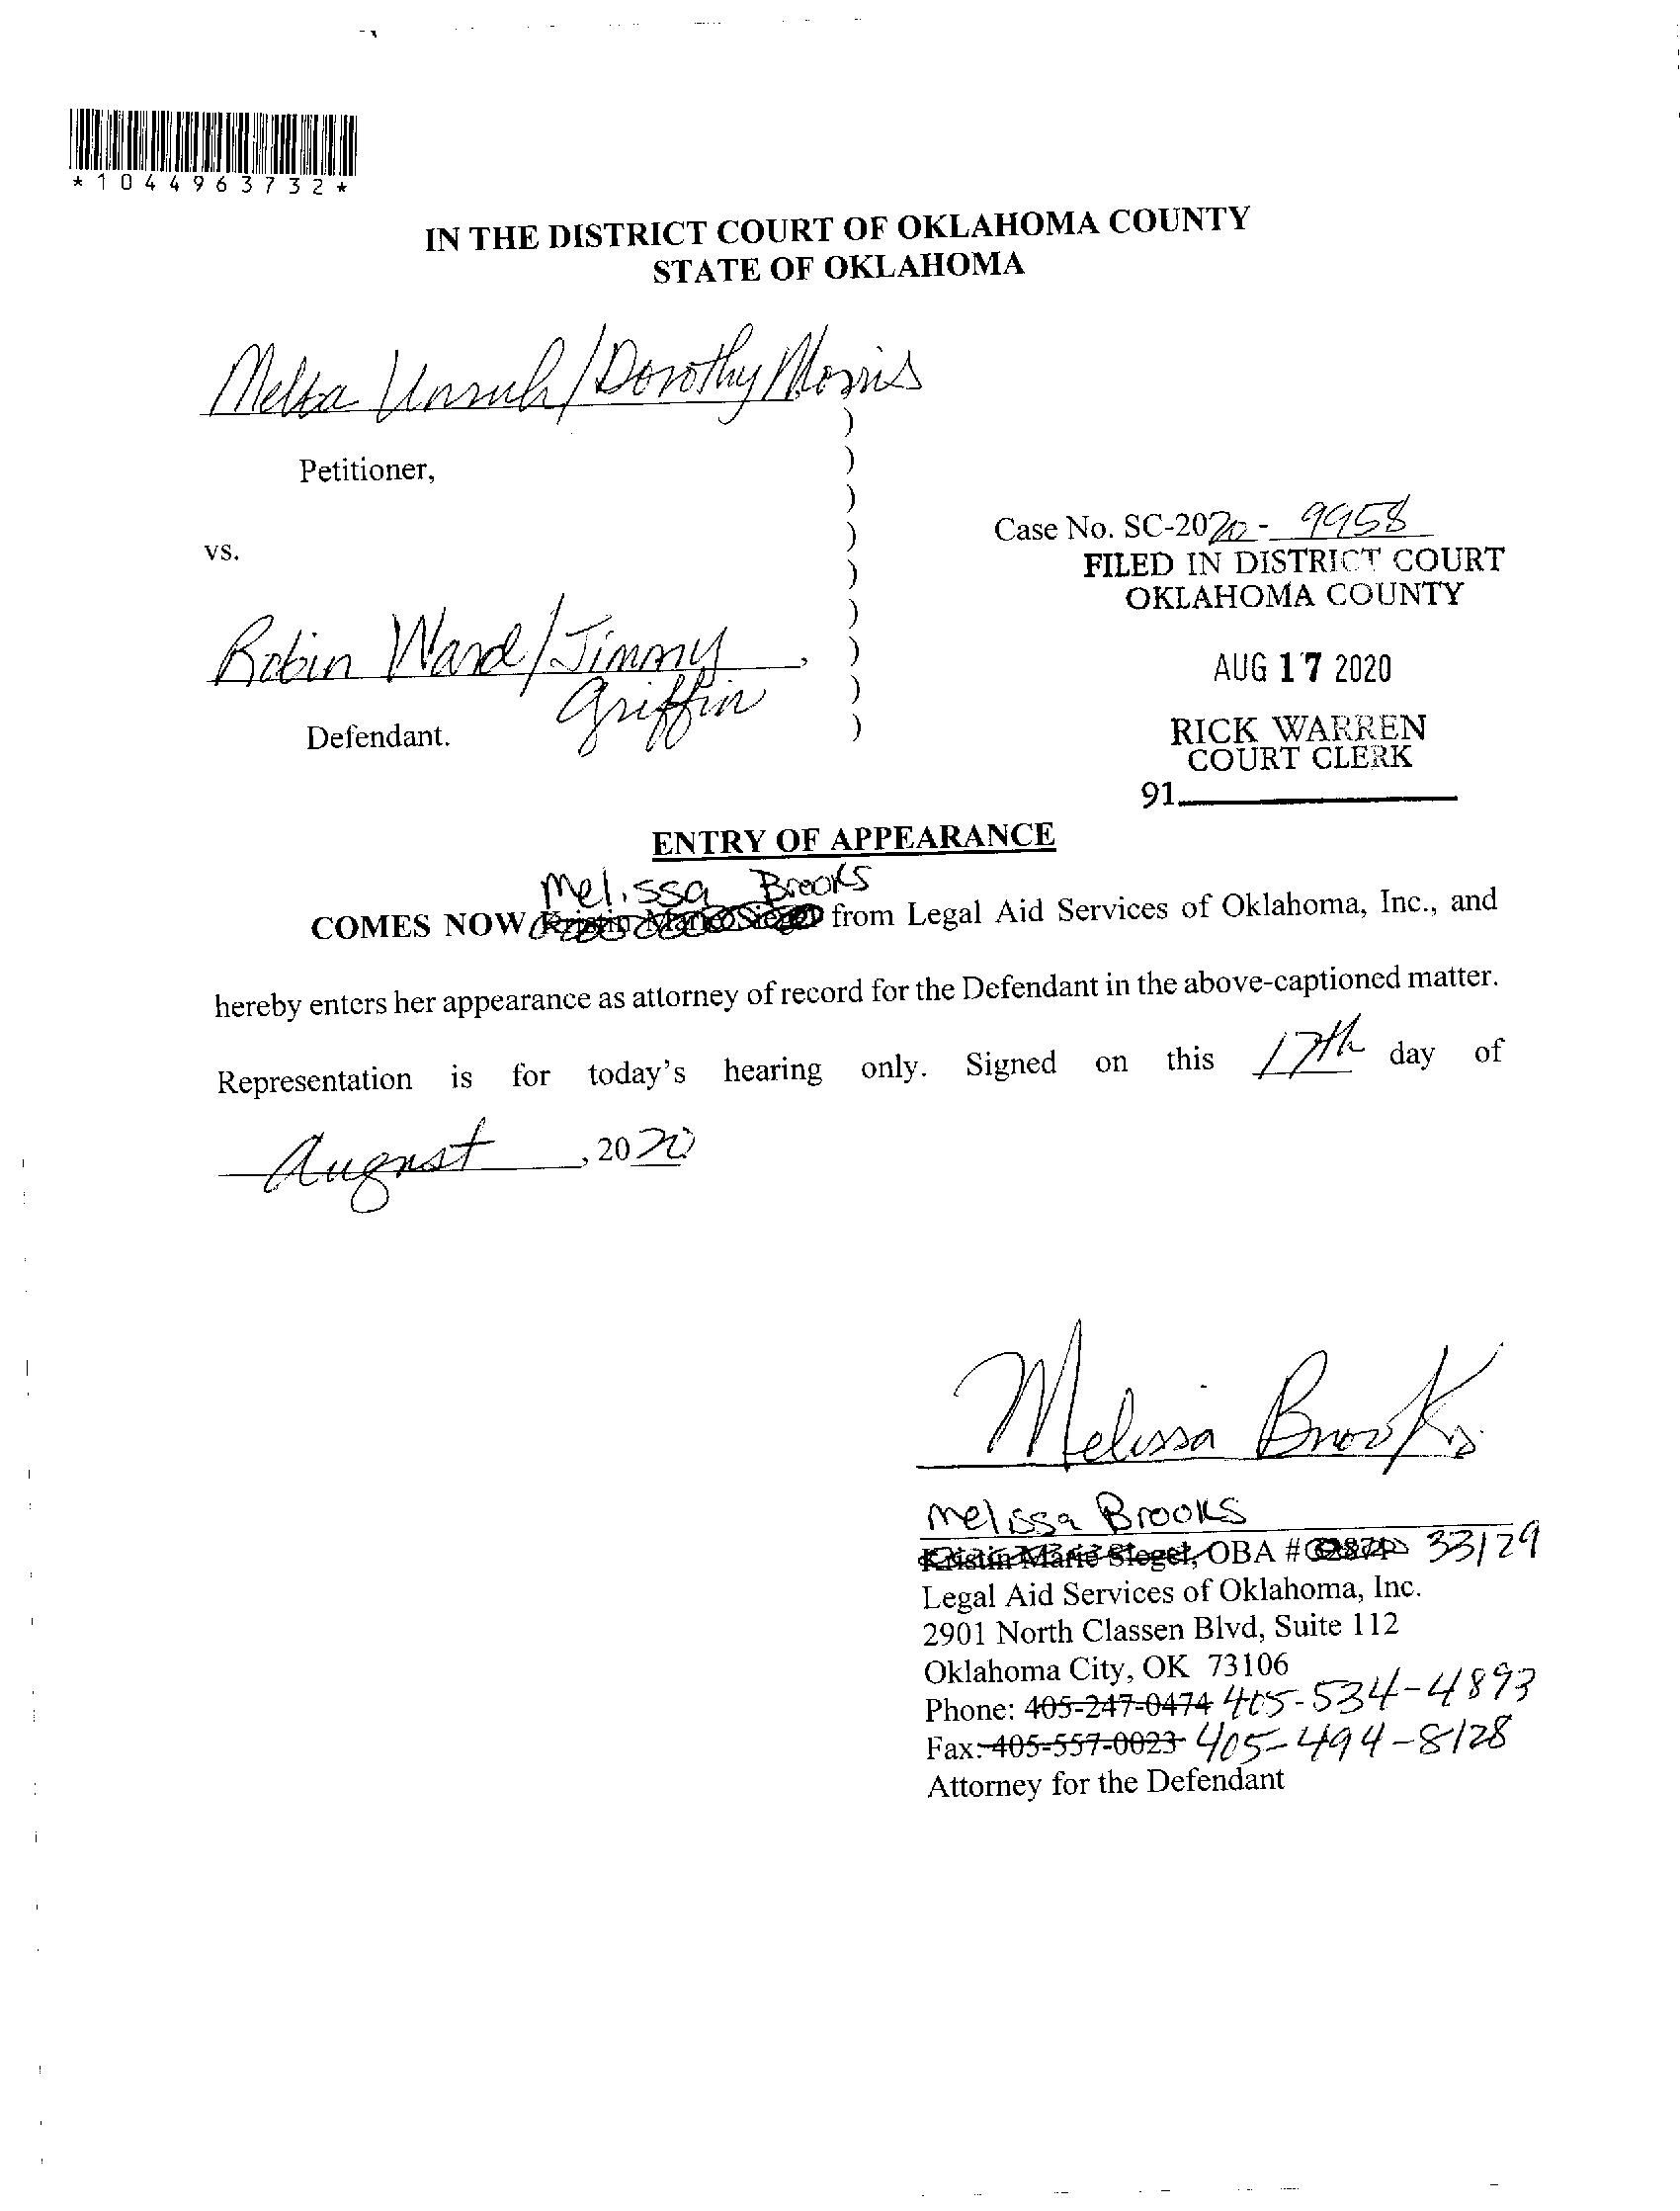 *1044963732*
IN THE DISTRICT COURT OF OKLAHOMA COUNTY
STATE OF OKLAHOMA
Melba Unruh/Dorothy Morris
)
Petitioner, )
)
Case No. SC-2020-9958
vs. )
FILED IN DISTRICT COURT
)
OKLAHOMA COUNTY
)
Robin Ward/Jimmy , )
AUG 17 2020
Griffin )
Defendant. )
RICK WARREN
COURT CLERK
91
ENTRY OF APPEARANCE
Melissa Brooks
COMES NOW Kristin Marie Siegel from Legal Aid Services of Oklahoma, Inc., and
hereby enters her appearance as attorney of record for the Defendant in the above-captioned matter.
Representation is for today's hearing only. Signed on this 17th day of
August, 2020
Melissa Brooks
Melissa Brooks
Kristin Marie Siegel, OBA # 33129
Legal Aid Services of Oklahoma, Inc.
2901 North Classen Blvd, Suite 112
Oklahoma City, OK 73106
Phone: 405-247-0474 405-534-4893
Fax: 405-557-0023 405-494-8128
Attorney for the Defendant